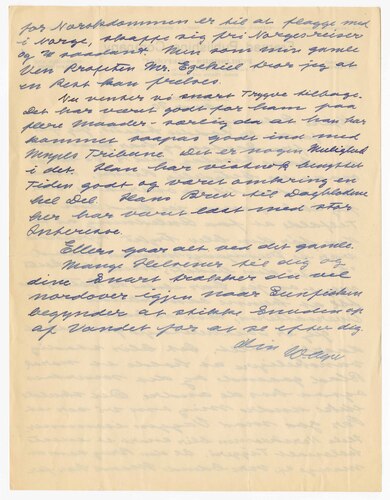 for Norskdommen er til at flagge med
i Norge, skaffe sig fri Norgesreiser
og St saadant. Men som min gamle
Ven Profeten Mr. Ezekiel tror jeg at
en Rest kan frelses.
Nu venter vi snart Trygve tilbage.
Det har været godt for ham paa
flere Maader – særlig da at han har
kommet saapas godt ind med
Mpgls Tribune. Det er nogen Mulighed
i det. Han har vistnok benyttet
Tiden godt og været omkring en
hel Del. Hans Brev til Dagbladene
her har været læst med stor
Interesse.
Ellers gaar alt ved det gamle.
Mange Hilsener til dig og
dine. Snart trækker du vel
nordover igjen naar Sunfisken
begynder at stikke Snuden op
af Vandet for at se efter dig
Din